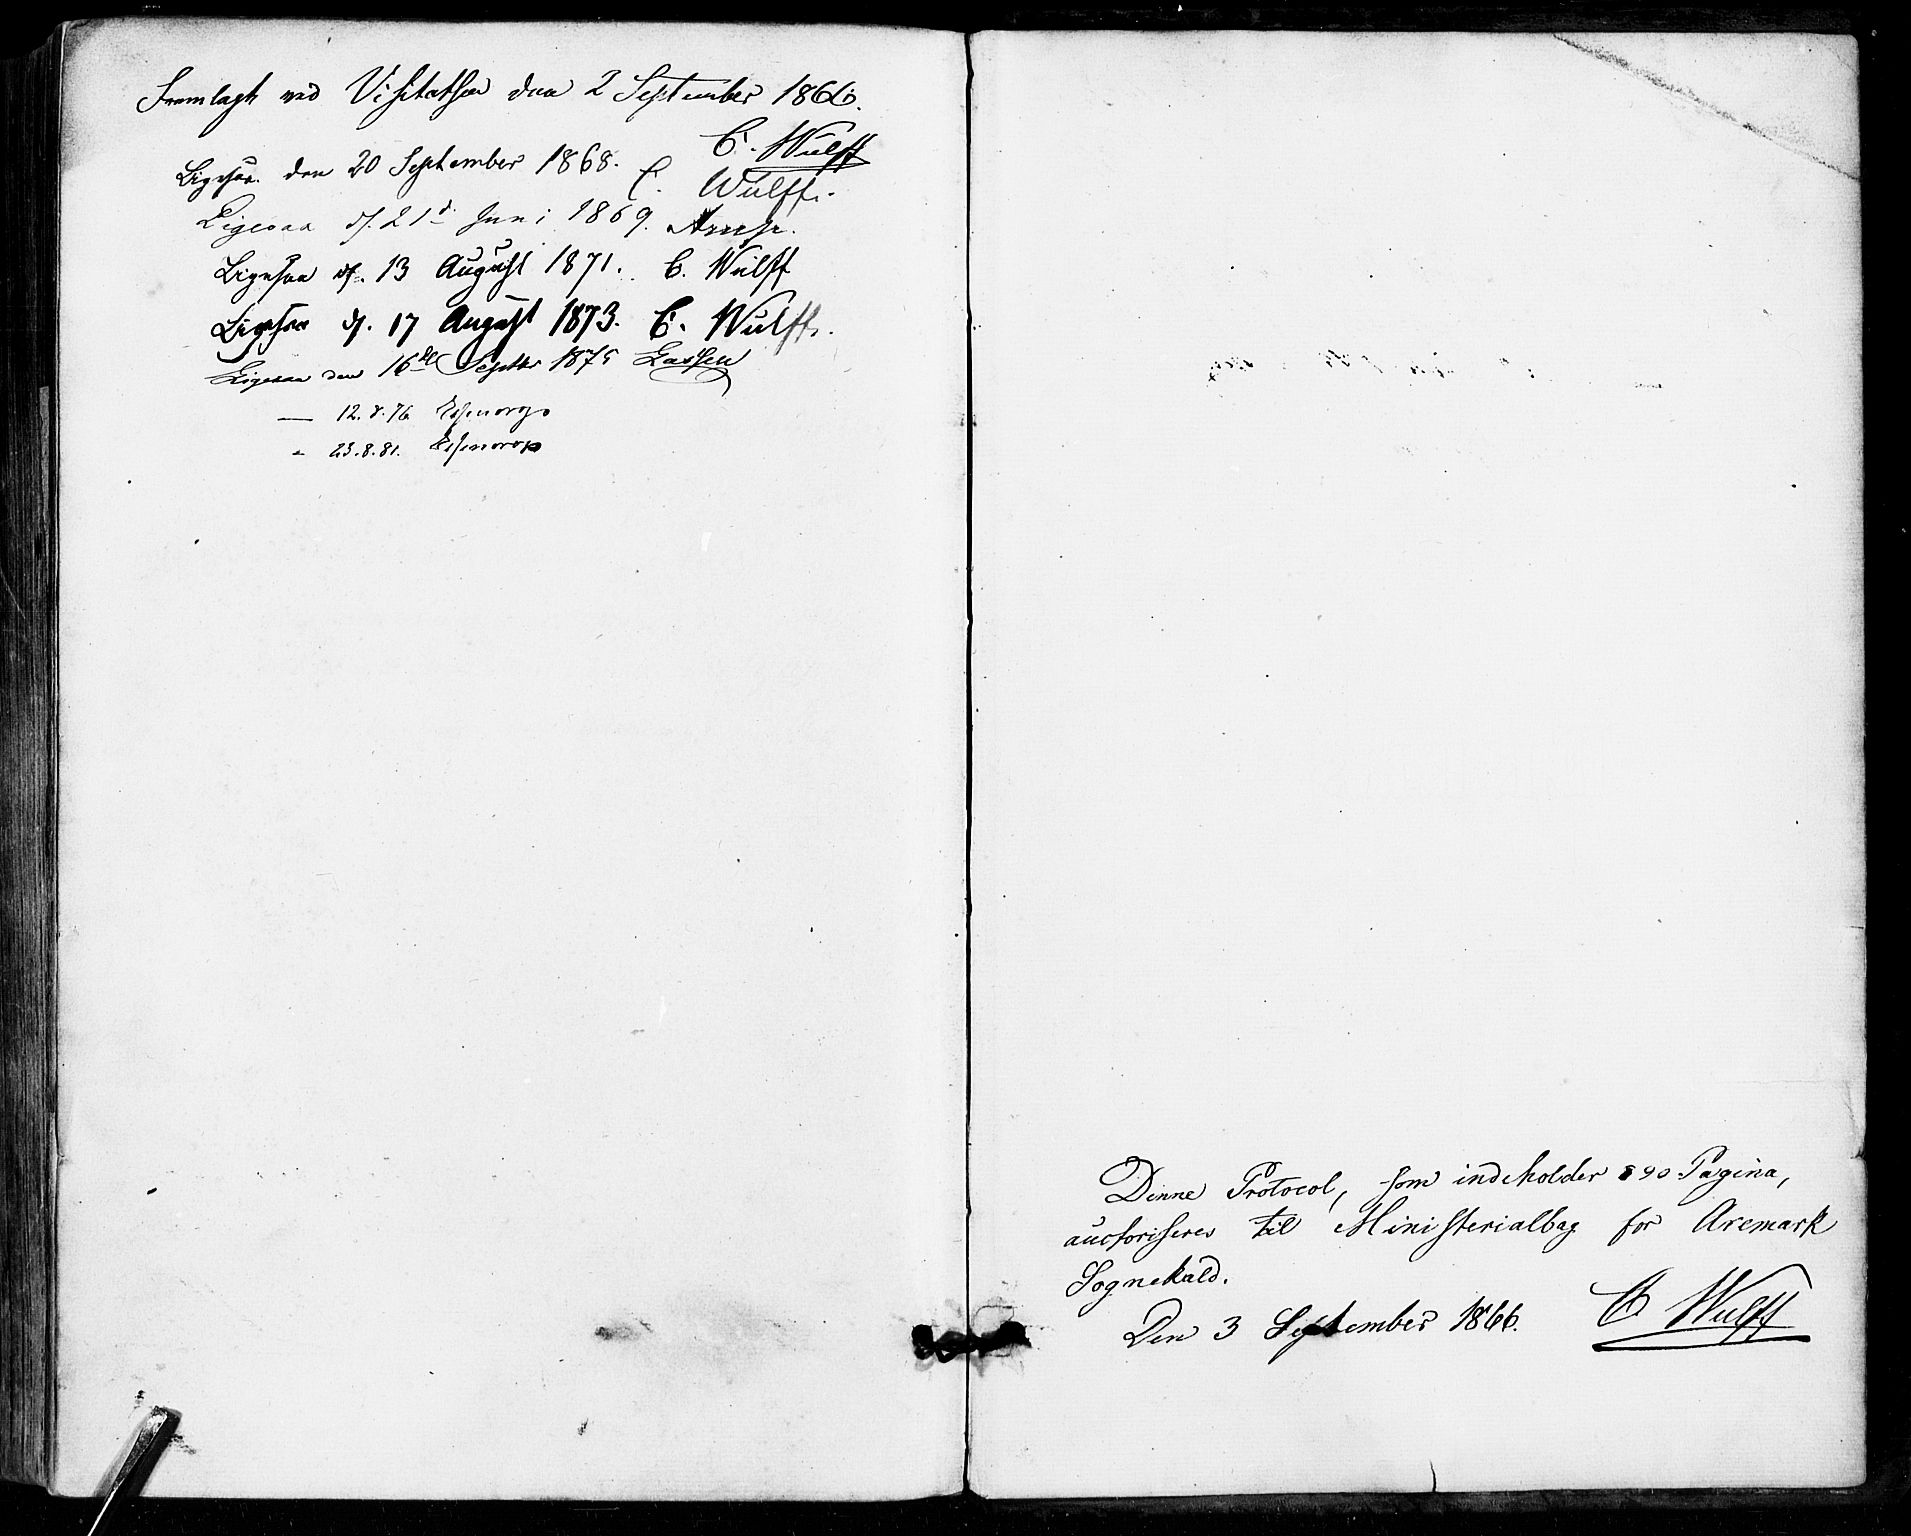 Fremlagt ved Visitatsen den 2 September 1866.
C. Wulff
Ligesaa. den 20 September 1868. C. Wulff.
Ligesaa d. 21d Juni 1869. Arup.
Ligesaa d. 13 August 1871. C. Wulff
Ligesaa d. 17 August 1873. C. Wulff.
Ligesaa den 16de Septbr 1875 Lassen
— 12.8.76 Essendrop
" 23.8.81. Essendrop
Denne Protocol, som indeholder 890 Pagina,
auctoriseres til Ministerialbog for Aremark
Sognekald.
Den 3 September 1866. C Wulff